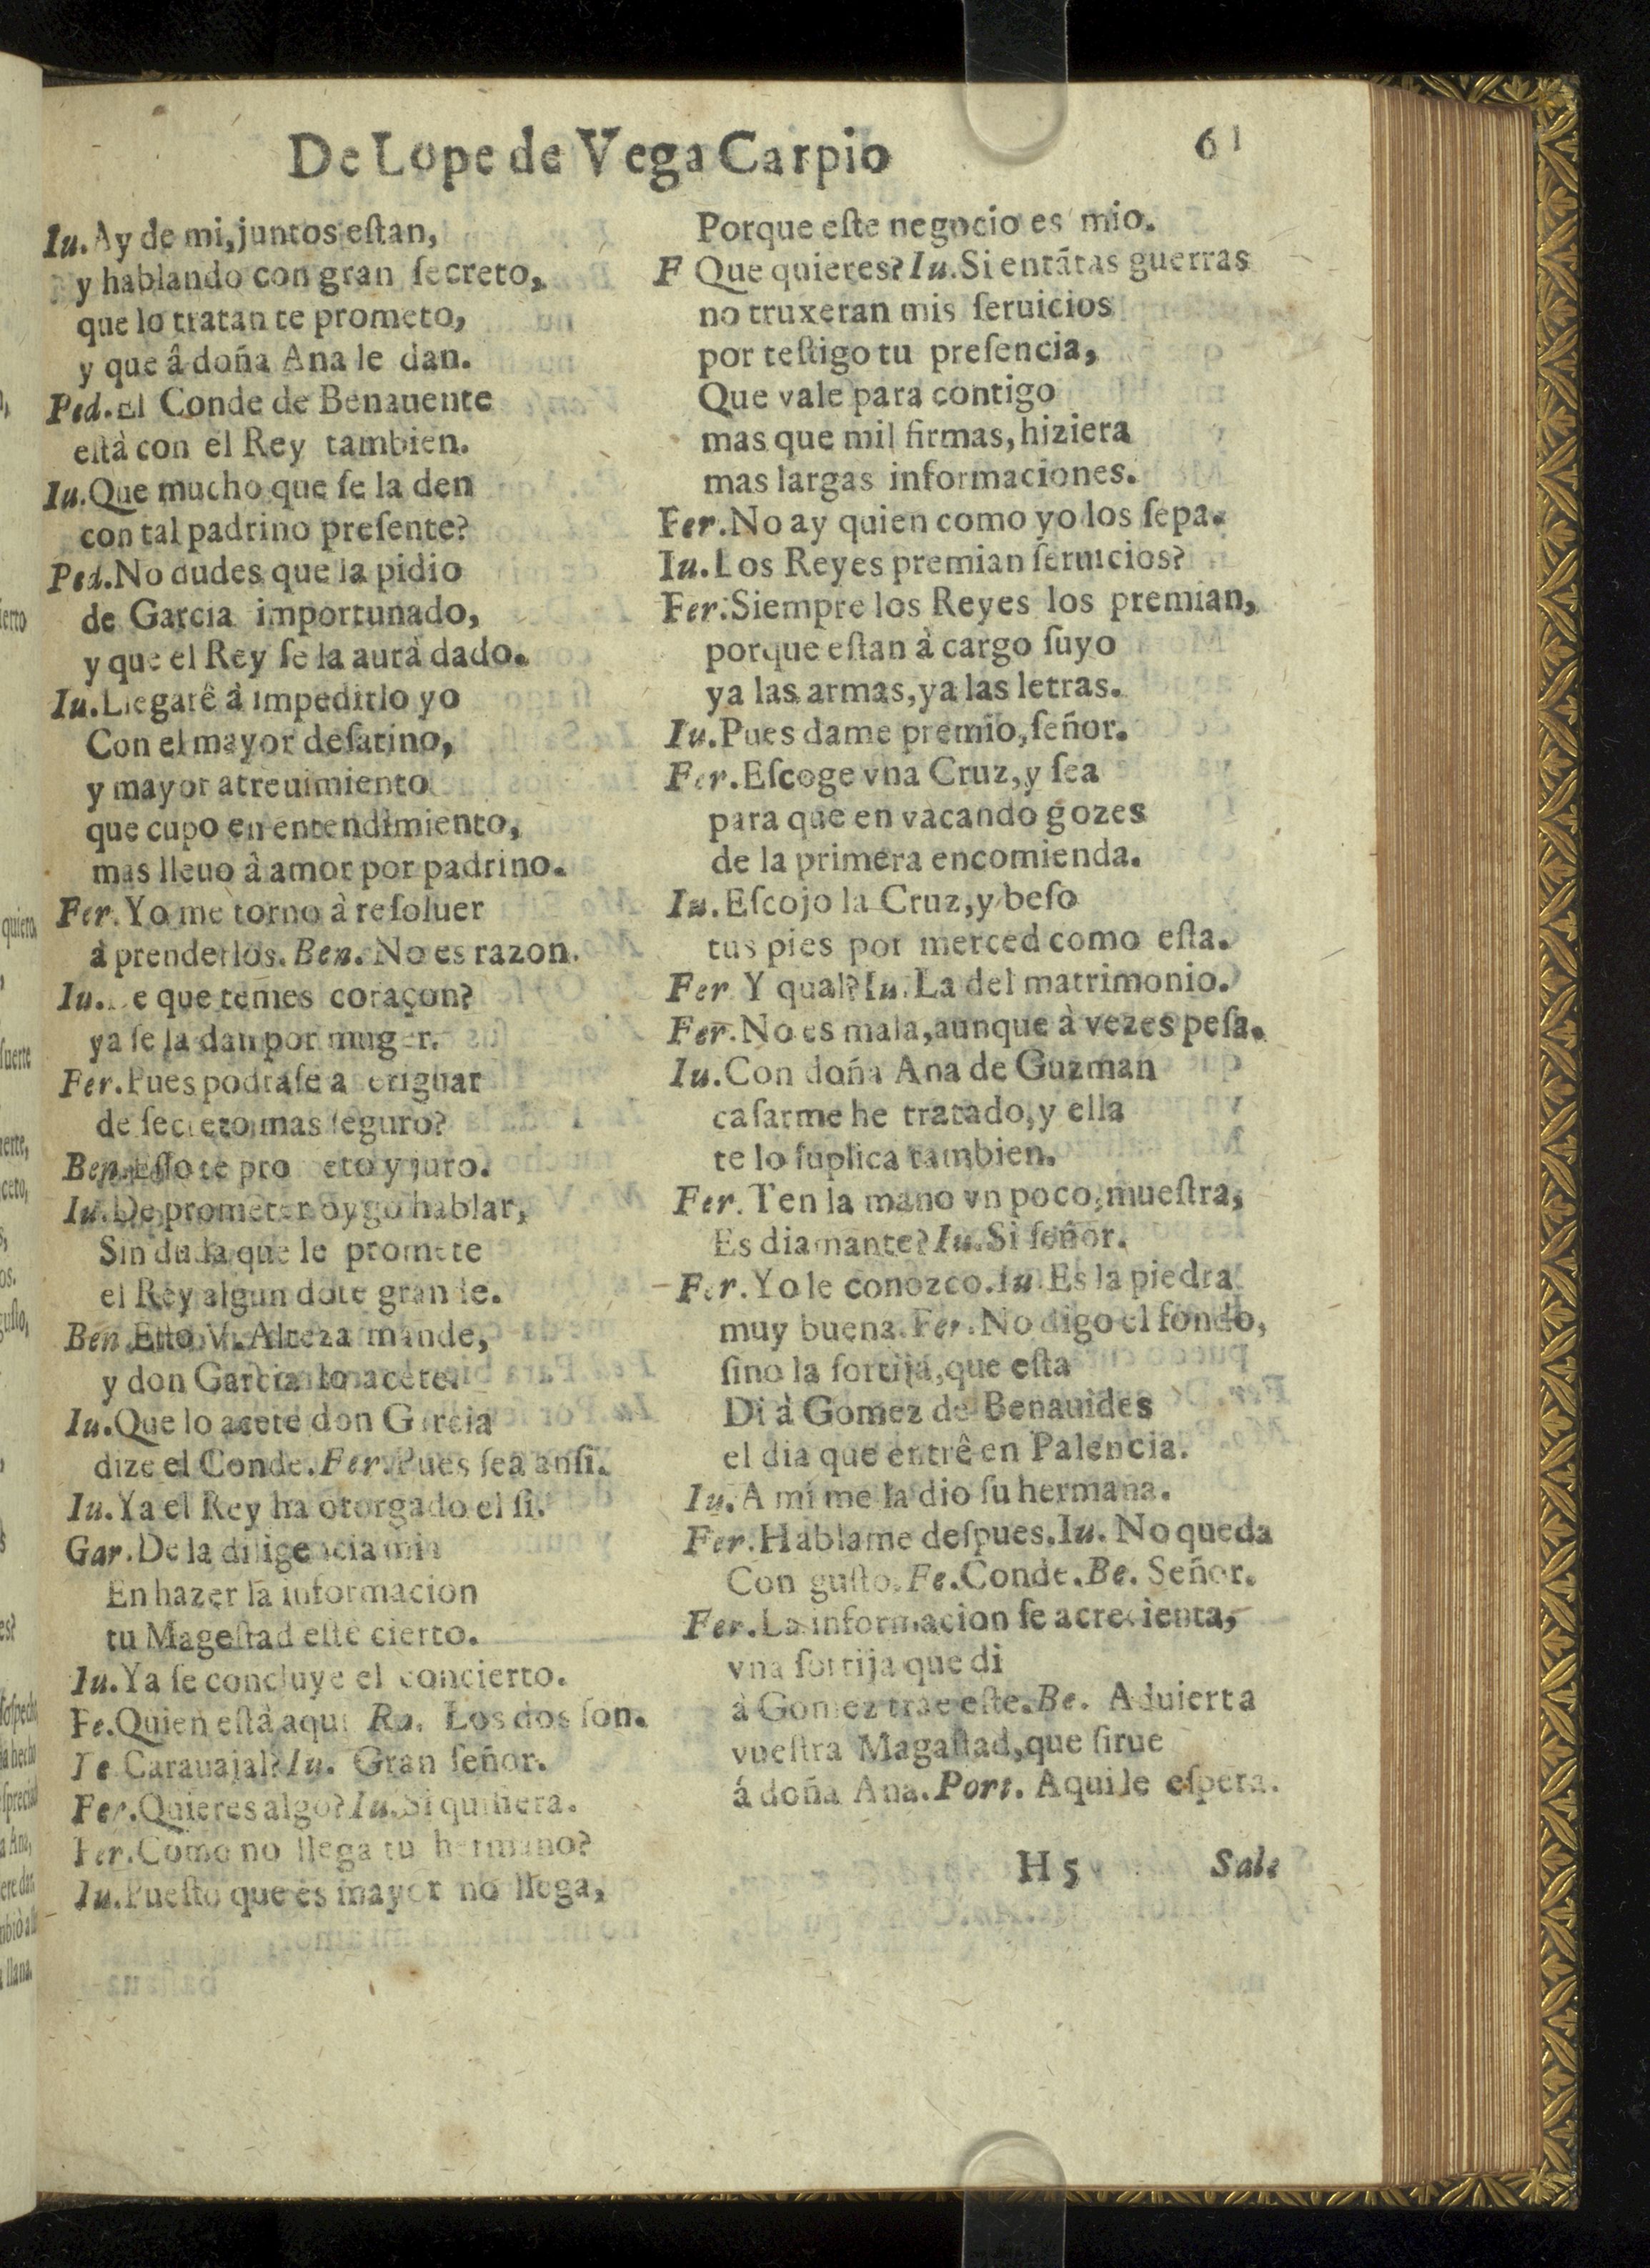 De Lope de Vega Carpio 61
Iu. Ay de mi, juntos eſtan,
y hablando con gran ſecreto,
que lo tratan te prometo,
y que â doña Ana le dan.
Ped. El Conde de Benauente
eſtà con el Rey tambien.
Iu. Que mucho que ſe la den
con tal padrino preſente?
Ped. No dudes que la pidio
de Garcia importunado,
y que el Rey ſe la aurà dado.
Iu. Llegarê â impedirlo yo
Con el mayor deſatino,
y mayor atreuimiento
que cupo en entendimiento,
mas lleuo â amor por padrino.
Fer. Yo me torno à reſoluer
à prenderlos. Ben. No es razon.
Iu. e que temes coraçon?
ya ſe la dan por muger.
Fer. Pues podraſe a eriguar
de ſecreto mas ſeguro?
Ben. Eſſo te pro eto y juro.
Iu. De prometer oygo hablar,
Sin duda que le promete
el Rey algun dote grande.
Ben. Eſto V. Alteza mande,
y don Garcia lo acete.
Iu. Que lo acete don Garcia
dize el Conde. Fer. Pues ſea anſi.
Iu. Ya el Rey ha otorgado el ſi.
Gar. De la diligencia mia
En hazer la informacion
tu Mageſtad eſte cierto.
Iu. Ya ſe concluye el concierto.
Fe. Quien eſtâ aqui Ro. Los dos ſon.
Fe Carauajal? Iu. Gran ſeñor.
Fer. Quieres algo? Iu. Si quiſiera.
Fer. Como no llega tu hermano?
Iu. Pueſto que es mayor no llega,
Porque eſte negocio es mio.
F Que quieres? Iu. Si en tãtas guerras
no truxeran mis ſeruicios
por teſtigo tu preſencia,
Que vale para contigo
mas que mil firmas, hiziera
mas largas informaciones.
Fer. No ay quien como yo los ſepa.
Iu. Los Reyes premian ſeruicios?
Fer. Siempre los Reyes los premian,
porque eſtan à cargo ſuyo
ya las armas, ya las letras.
Iu. Pues dame premio, ſeñor.
Fer. Eſcoge vna Cruz, y ſea
para que en vacando gozes
de la primera encomienda.
Iu. Eſcojo la Cruz, y beſo
tus pies por merced como eſta.
Fer Y qual? Iu. La del matrimonio.
Fer. No es mala, aunque à vezes peſa.
Iu. Con doña Ana de Guzman
caſarme he tratado, y ella
te lo ſuplica tambien.
Fer. Ten la mano vn poco, mueſtra,
Es diamante? Iu. Si ſeñor.
Fer. Yo le conozco. Iu. Es la piedra
muy buena. Fer. No digo el fondo,
ſino la ſortija, que eſta
Di à Gomez de Benauides
el dia que entrê en Palencia.
Iu. A mi me la dio ſu hermana.
Fer. Hablame deſpues. Iu. No queda
Con guſto. Fe. Conde. Be. Señor.
Fer. La informacion ſe acrecienta,
vna ſortija que di
à Gomez trae eſte. Be. Aduierta
vueſtra Magaſtad, que ſirue
á doña Ana. Port. Aqui le eſpera.
H 5 Sale